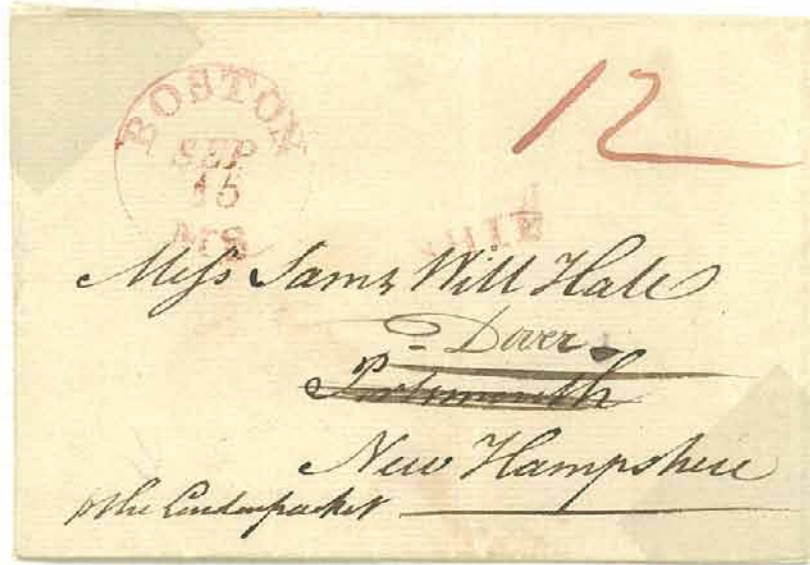 BOSTON
SEP
15
MS
12
SHIP
Mess Sam & Will Hale
Dover
Portsmouth
New Hampshire
p the London packet